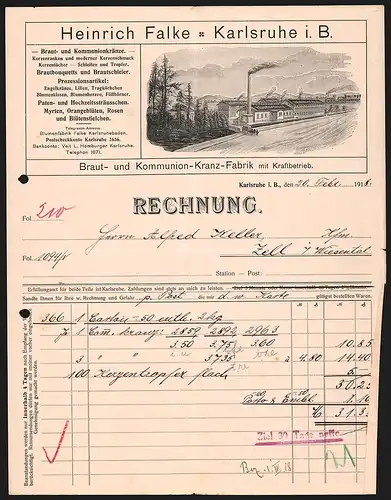 Heinrich Falke Karlsruhe i. B.
— Braut- und Kommunionkränze. —
Kerzenranken und moderner Kerzenschmuck
Kerzentücher — Schleifen und Tropfer.
Brautbouquetts und Brautschleier.
Prozessionsartikel:
Engelkränze, Lilien, Tragkörbchen
Blumenkissen, Blumenbarren, Füllhörner.
Paten- und Hochzeitssträusschen.
Myrten, Orangeblüten, Rosen
und Blütenstielchen.
Telegramm-Adresse:
Blumenfabrik Falke Karlsruhebaden.
Postscheckkonto Karlsruhe 2656.
Bankkonto: Veit L. Homburger Karlsruhe.
Telephon 1671.
Braut- und Kommunion-Kranz-Fabrik mit Kraftbetrieb.
Karlsruhe i. B., den 20. Febr. 1918.
RECHNUNG.
Fol. 210
Herrn Alfred Keller, Kfm.
Fol. 1094/r
Zell i/ Wiesental
Station — Post:
Erfüllungsort für beide Teile ist Karlsruhe. Zahlungen sind stets an mich zu leisten.
Sandte Ihnen für Ihre w. Rechnung und Gefahr p. Post die mit d. w. Karte gütigst bestellten Waren.
366 1 Carton - 50 entb. 2 kg
Je 1 Com. kranz: 2859 2892 2963
3.50 3.75 3.60 10.85
3 " " 3735 a 4.80 14.40
100 Kerzentropfer flach
Porto & Emb.
31.
Ziel 30 Tage netto